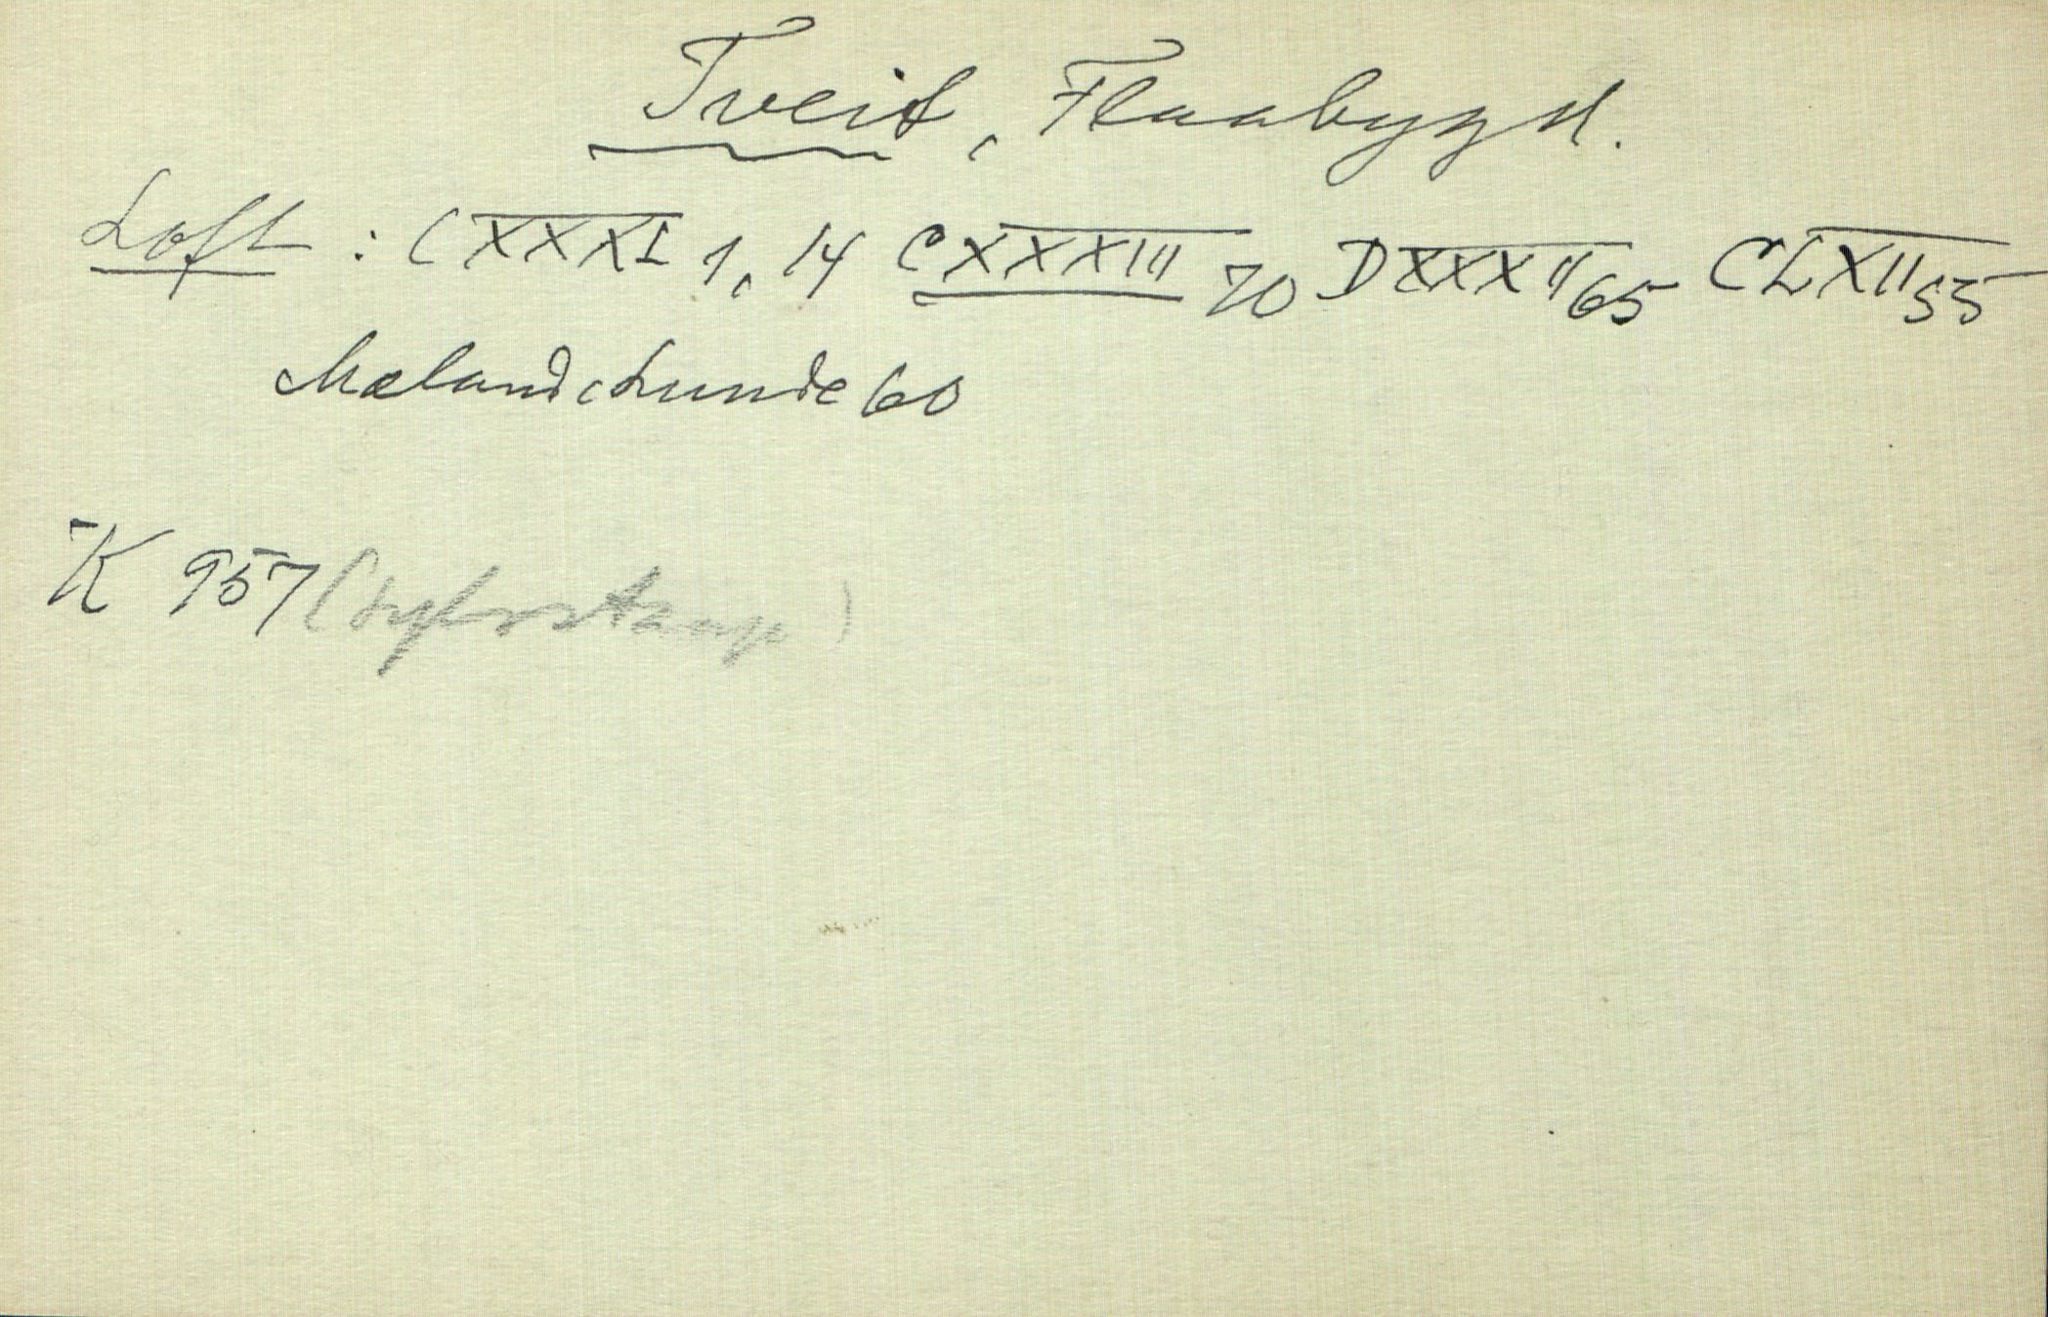 Tveit, Flaabygd.
Loft : CXXXI 1, 14 CXXXIII 70 DXXXII 65 CLXII 55
Mælandslunde 60
K 957 ( )